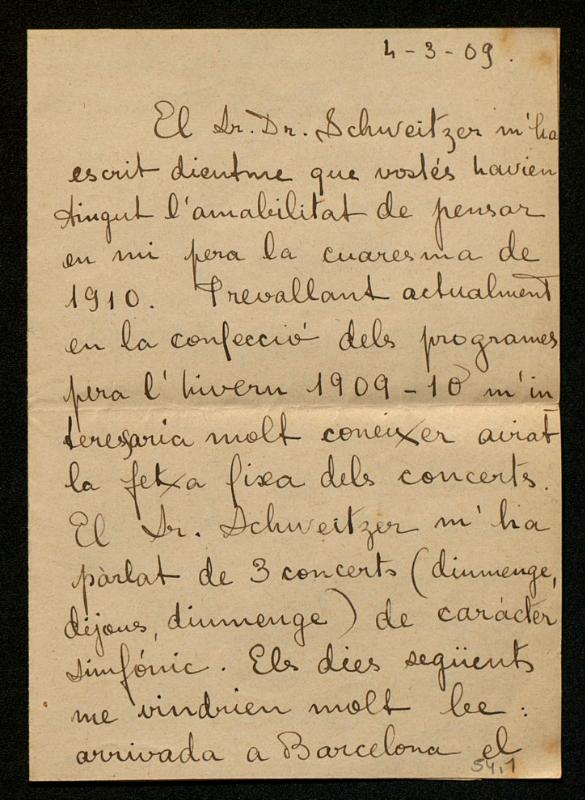 4-3-09.
El Sr. Dr. Schweitzer m'ha
escrit dientme que vostés havien
tingut l'amabilitat de pensar
en mi pera la cuaresma de
1910. Trevallant actualment
en la confecció dels programes
pera l'hivern 1909-10 m'in
teresaria molt coneixer aviat
la fetxa fixa dels concerts.
El Sr. Schweitzer m'ha
pàrlat de 3 concerts (diumenge,
dijous, diumenge) de carácter
simfónic. Els dies següents
me vindrien molt be:
arrivada a Barcelona el
54,1